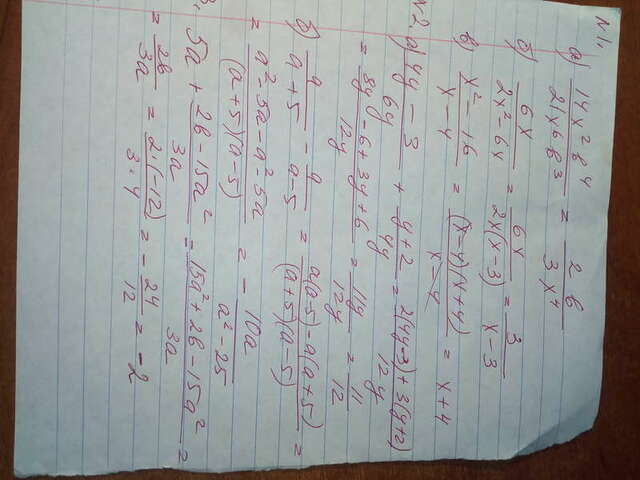 N1.
а) 14x²b⁴ / 21x⁶b³ = 2b / 3x⁴
б) 6x / 2x²-6x = 6x / 2x(x-3) = 3 / x-3
в) x²-16 / x-4 = (x-4)(x+4) / x-4 = x+4
N2. а) 4y-3 / 6y + y+2 / 4y = 2(4y-3)+3(y+2) / 12y
= 8y-6+3y+6 / 12y = 11y / 12y = 11 / 12
б) a / a+5 - a / a-5 = a(a-5)-a(a+5) / (a+5)(a-5) =
= a²-5a-a²-5a / (a+5)(a-5) = - 10a / a²-25
5a + 2b-15a² / 3a = 15a²+2b-15a² / 3a =
= 2b / 3a = 2·(-12) / 3·4 = - 24 / 12 = -2